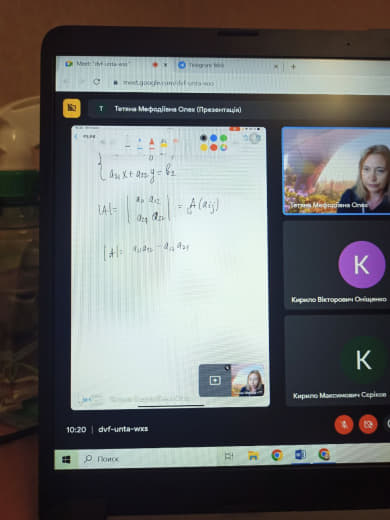 Meet: "dvf-unta-wxs"
Telegram Web
meet.google.com/dvf-unta-wxs
Т Тетяна Мефодіївна Олех (Презентація)
a₂₁x + a₂₂y = b₂
|A| = | a₁₁ a₁₂
a₂₁ a₂₂ | = A(aij)
|A| = a₁₁a₂₂ - a₁₂a₂₁
Тетяна Мефодіївна Олех
К
Кирило Вікторович Оніщенко
К
Кирило Максимович Сєріков
10:20 | dvf-unta-wxs
Поиск